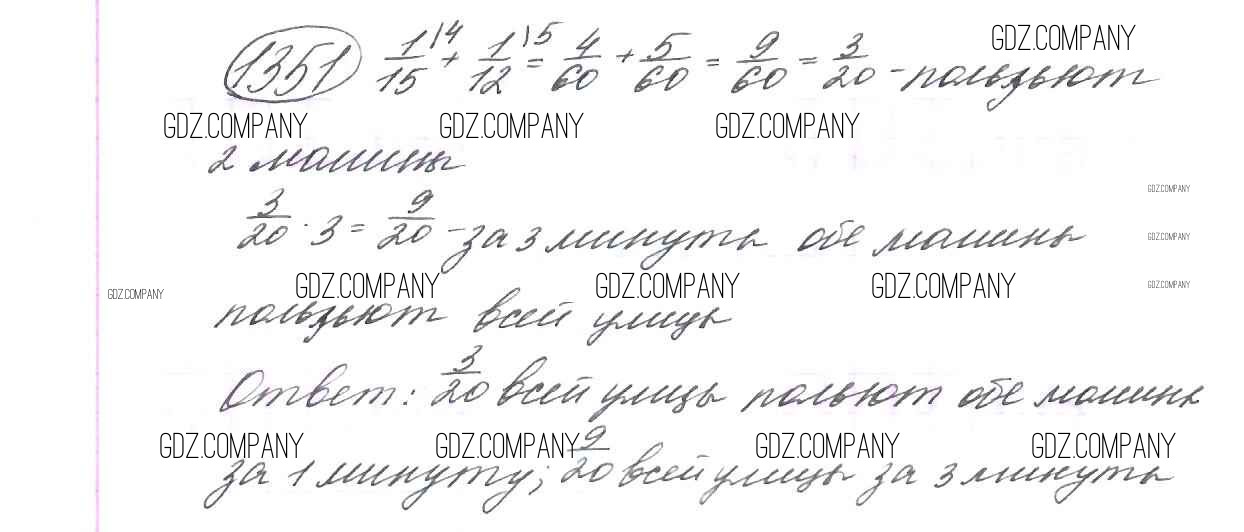 1351 1/15 \4 + 1/12 \5 = 4/60 + 5/60 = 9/60 = 3/20 - польют
GDZ.COMPANY
GDZ.COMPANY GDZ.COMPANY GDZ.COMPANY
2 машины
GDZ.COMPANY
3/20 · 3 = 9/20 - за 3 минуты обе машины
GDZ.COMPANY
GDZ.COMPANY GDZ.COMPANY GDZ.COMPANY GDZ.COMPANY GDZ.COMPANY
польют всей улицы
Ответ: 3/20 всей улицы польют обе машины
GDZ.COMPANY GDZ.COMPANY GDZ.COMPANY GDZ.COMPANY
за 1 минуту; 9/20 всей улицы за 3 минуты